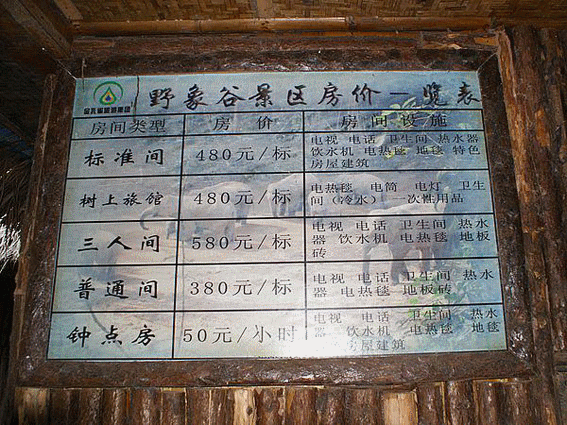 野象谷景区房价一览表
房间类型 房价 房间设施
标准间 480元/标 电视 电话 卫生间 热水器
饮水机 电热毯 地毯 特色
房屋建筑
树上旅馆 480元/标 电热毯 电筒 电灯 卫生
间(冷水) 一次性用品
三人间 580元/标 电视 电话 卫生间 热水
器 饮水机 电热毯 地板
砖
普通间 380元/标 电视 电话 卫生间 热水
器 电热毯 地板砖
钟点房 50元/小时 电视 电话 卫生间 热水
器 饮水机 电热毯 地毯
房屋建筑